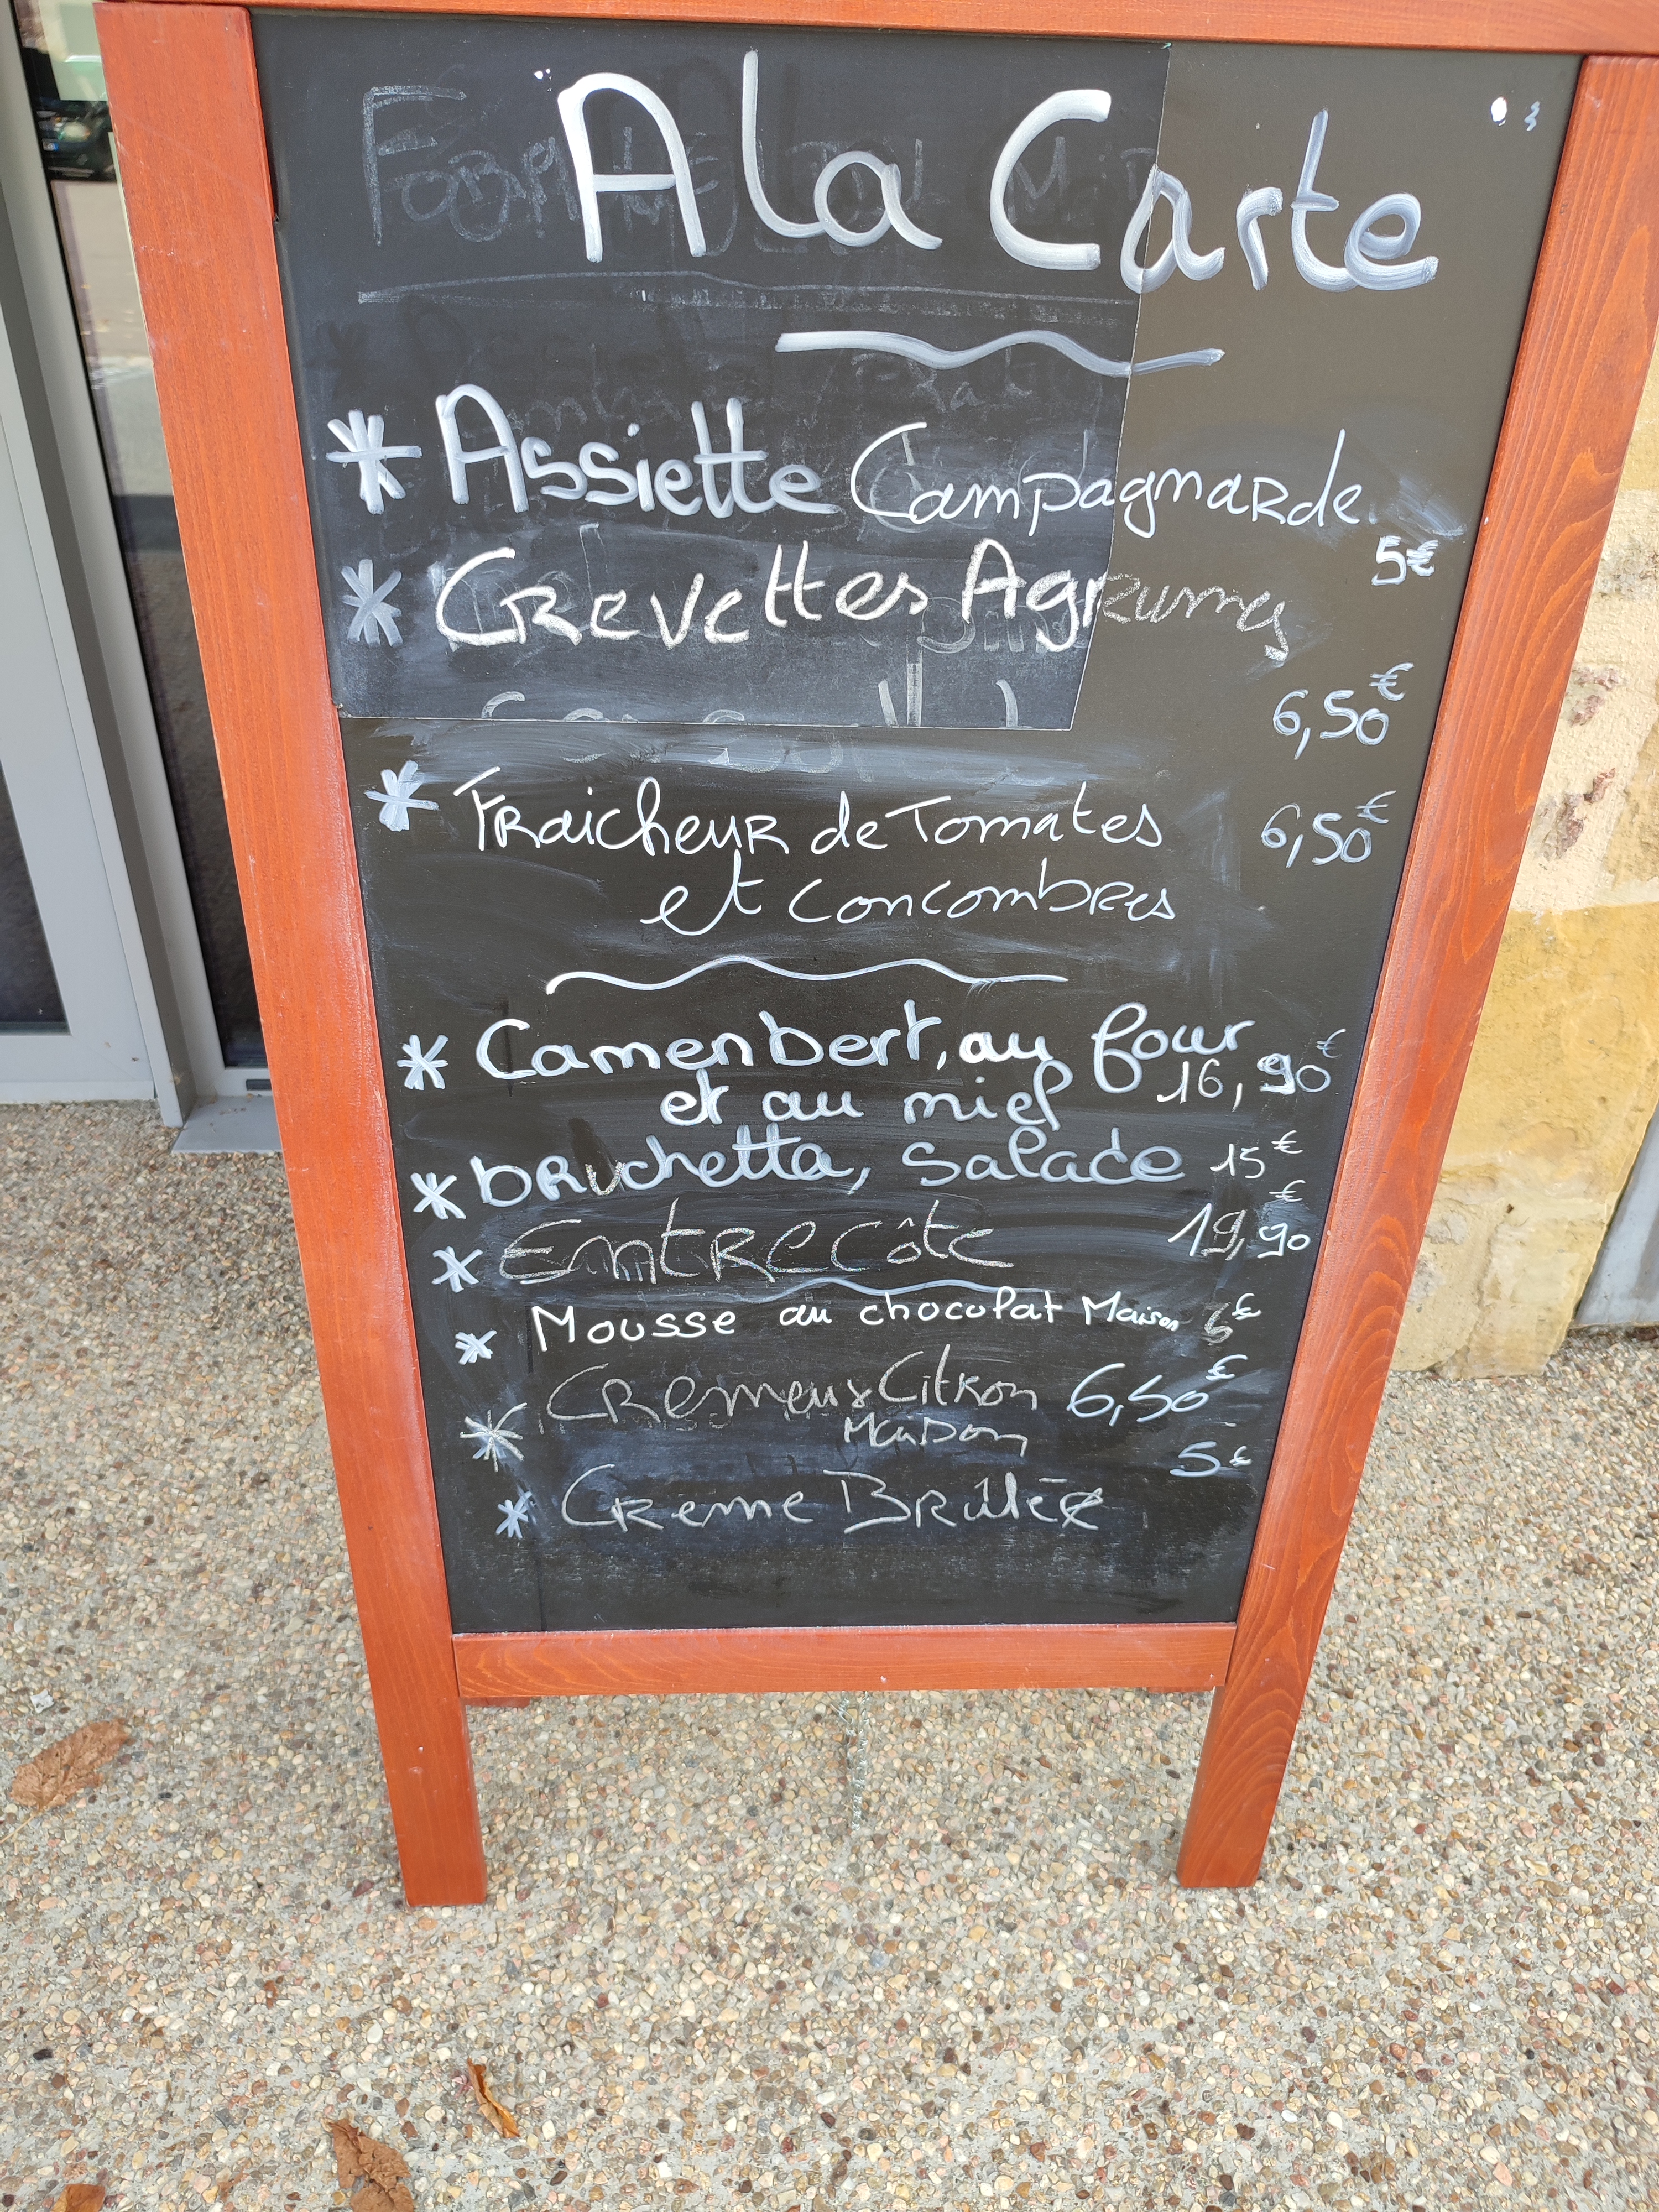 A la Carte
* Assiette Campagnarde
5€
* Crevettes Agrumes
6,50€
* Fraicheur de Tomates 6,50€
et concombres
* Camenbert, au four
16,90€
et au miel
* bruchetta, Salade 15€
* Entrecôte 19,90€
* Mousse au chocolat Maison 6€
* Cremeux Citron 6,50€
Maison
5€
* Creme Brûlée